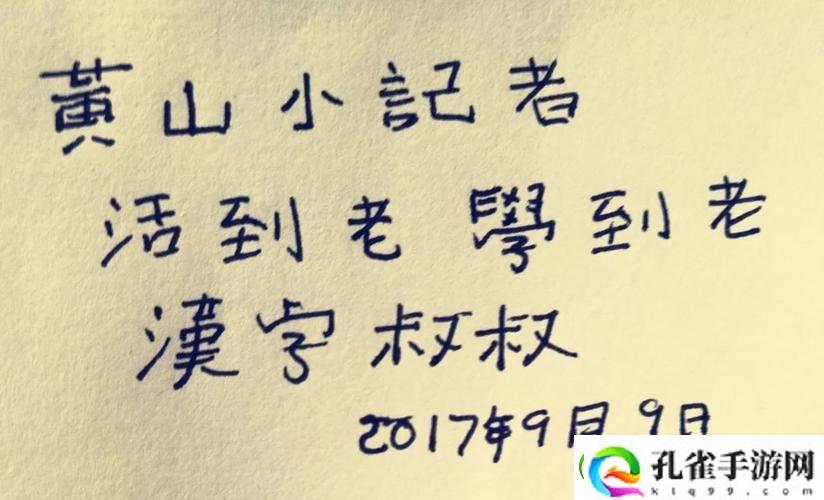 黃山小記者
活到老 學到老
漢字叔叔
2017年9月9日
孔雀手游网
ktq99.com